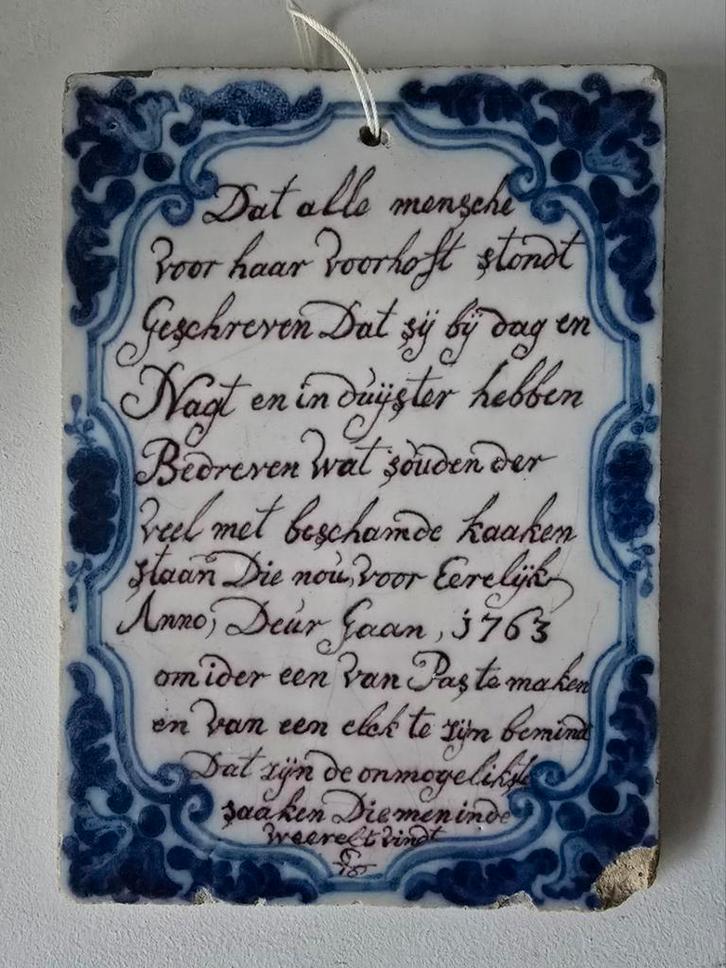 Dat alle mensche
voor haar voorhoft stondt
Geschreven Dat sij bij dag en
Nagt en in duijster hebben
Bedreven wat souden der
veel met beschamde kaaken
staan Die nou, voor Eerelijk
Anno, Deur Gaan, 1763
om ider een van Pas te maken
en van een elck te zijn bemind
Dat zijn de onmogelikste
saaken Die men in de
weerelt vindt